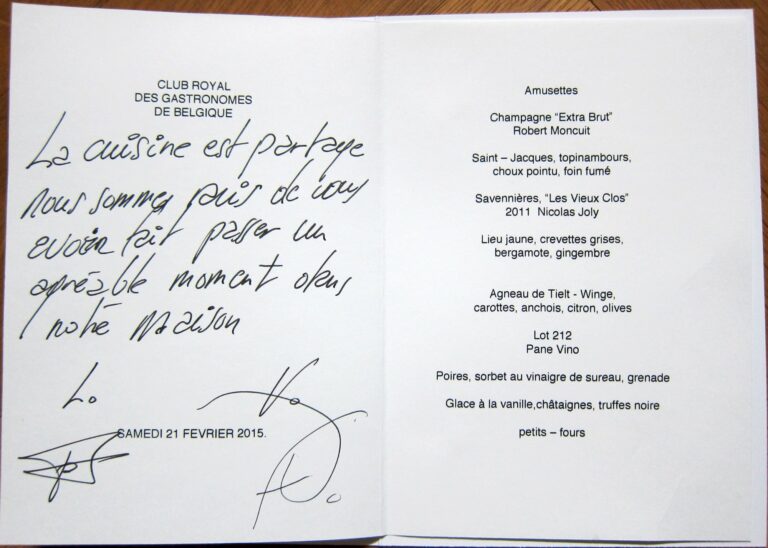 CLUB ROYAL
DES GASTRONOMES
DE BELGIQUE
La cuisine est partage
nous sommes de vous
avoir fait passer un
agréable moment dans
notre maison
L.
V.
SAMEDI 21 FEVRIER 2015.
Amusettes
Champagne “Extra Brut”
Robert Moncuit
Saint – Jacques, topinambours,
choux pointu, foin fumé
Savennières, “Les Vieux Clos”
2011 Nicolas Joly
Lieu jaune, crevettes grises,
bergamote, gingembre
Agneau de Tielt - Winge,
carottes, anchois, citron, olives
Lot 212
Pane Vino
Poires, sorbet au vinaigre de sureau, grenade
Glace à la vanille,châtaignes, truffes noire
petits – fours